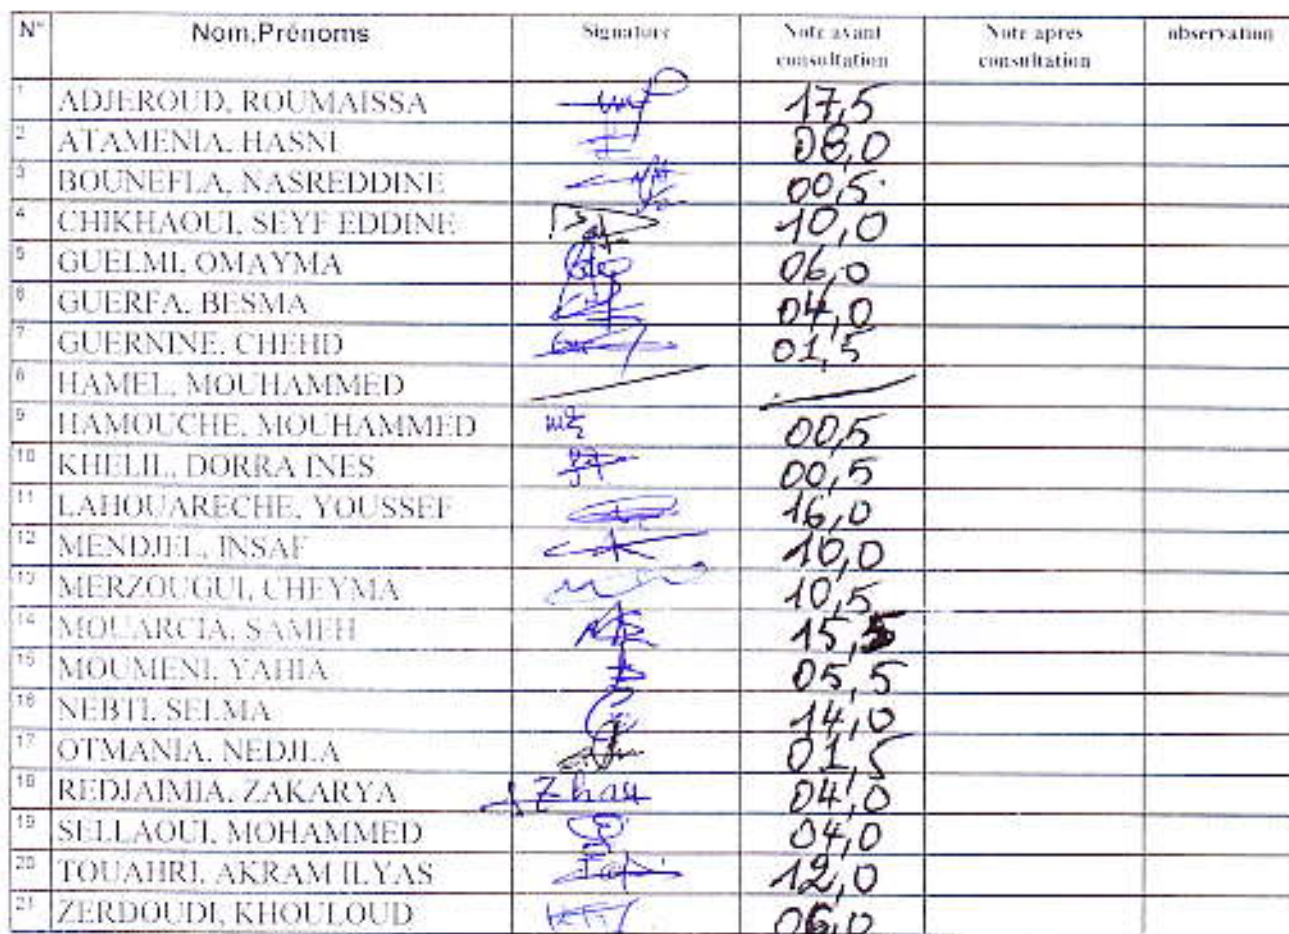 N° Nom,Prénoms Signature Note avant consultation Note apres consultation observation
1 ADJEROUD, ROUMAISSA 17,5
2 ATAMENIA, HASNI 08,0
3 BOUNEFLA, NASREDDINE 00,5
4 CHIKHAOUI, SEYF EDDINE 10,0
5 GUELMI, OMAYMA 06,0
6 GUERFA, BESMA 04,0
7 GUERNINE, CHEHD 01,5
8 HAMEL, MOUHAMMED
9 HAMOUCHE, MOUHAMMED 00,5
10 KHELIL, DORRA INES 00,5
11 LAHOUARECHE, YOUSSEF 16,0
12 MENDJEL, INSAF 10,0
13 MERZOUGUI, CHEYMA 10,5
14 MOUARCIA, SAMEH 15,5
15 MOUMENI, YAHIA 05,5
16 NEBTI, SELMA 14,0
17 OTMANIA, NEDJLA 01,5
18 REDJAIMIA, ZAKARYA 04,0
19 SELLAOUI, MOHAMMED 04,0
20 TOUAHRI, AKRAM ILYAS 12,0
21 ZERDOUDI, KHOULOUD 06,0